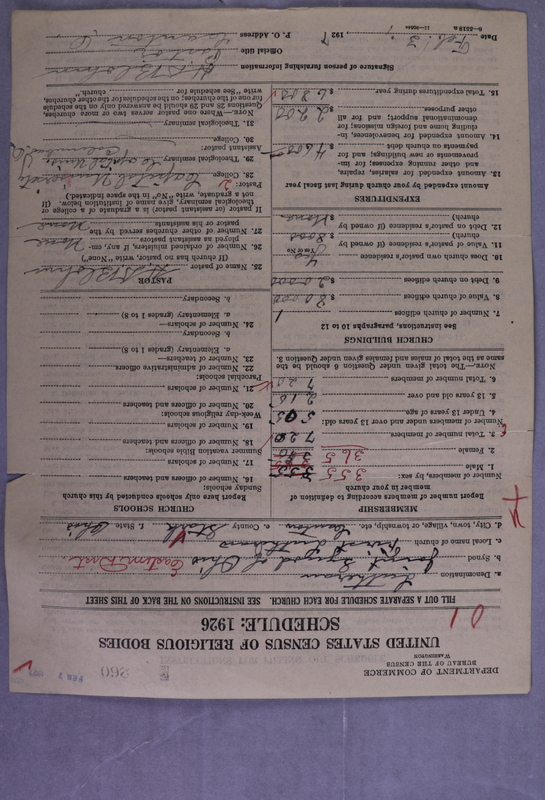 DEPARTMENT OF COMMERCE
BUREAU OF THE CENSUS
WASHINGTON
260
FEB 2
UNITED STATES CENSUS OF RELIGIOUS BODIES
SCHEDULE: 1926
01
FILL OUT A SEPARATE SCHEDULE FOR EACH CHURCH. SEE INSTRUCTIONS ON THE BACK OF THIS SHEET
a. Denomination Lutheran
b. Synod Joint Synod of Ohio Eastern Dist.
c. Local name of church
d. City, town, village, or township, etc. Canton e. County Stark f. State Ohio
MEMBERSHIP
Report number of members according to definition of
member in your church
Number of members, by sex:
1. Male 355
2. Female 365
3. Total number of members, 720
Number of members under and over 13 years old:
4. Under 13 years of age 505
5. 13 years old and over 215
6. Total number of members 720
NOTE.—The total given under Question 6 should be the
same as the total of males and females given under Question 3.
CHURCH BUILDINGS
See instructions, paragraphs 10 to 12
7. Number of church edifices 1
8. Value of church edifices $ 80000
9. Debt on church edifices $ 20000
10. Does church own pastor's residence (Yes or No)
11. Value of pastor's residence (if owned by
church) $ 8000
12. Debt on pastor's residence (if owned by
church) $ None
EXPENDITURES
Amount expended by your church during last fiscal year
13. Amount expended for salaries, repairs,
and other running expenses; for im-
provements or new buildings; and for
payments on church debt $ 4600
14. Amount expended for benevolences, in-
cluding home and foreign missions; for
denominational support; and for all
other purposes $ 2200
15. Total expenditures during year $ 6800
CHURCH SCHOOLS
Report here only schools conducted by this church
Sunday schools:
16. Number of officers and teachers
17. Number of scholars
Summer vacation Bible schools:
18. Number of officers and teachers
19. Number of scholars
Week-day religious schools:
20. Number of officers and teachers
21. Number of scholars
Parochial schools:
22. Number of administrative officers
23. Number of teachers—
a. Elementary (grades 1 to 8)
b. Secondary
24. Number of scholars—
a. Elementary (grades 1 to 8)
b. Secondary
PASTOR
25. Name of pastor
(If church has no pastor, write "None")
26. Number of ordained ministers, if any, em-
ployed as assistant pastors None
27. Number of other churches served by the
pastor or his assistants None
If pastor or assistant pastor is a graduate of a college or
theological seminary, give name of institution below. (If
not a graduate, write "No" in the space indicated.)
Pastor: 2
28. College Capital University
29. Theological seminary Capital Univ.
Assistant pastor:
30. College
31. Theological seminary
NOTE.—Where one pastor serves two or more churches,
Questions 28 and 29 should be answered only on the schedule
for one of the churches; on the schedule for the other churches,
write "See schedule for church."
Signature of person furnishing information
Official title Pastor
P. O. Address Canton, O.
Date Feb. 13, 1927